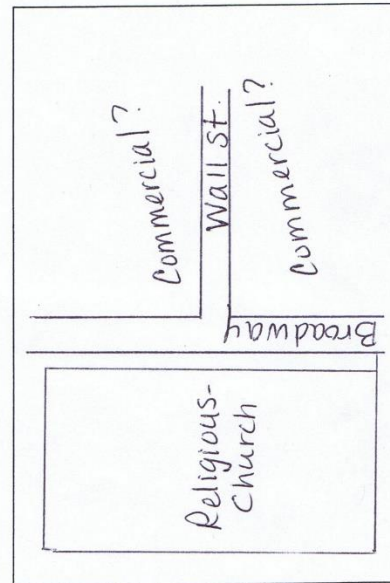 Commercial?
Wall st.
Commercial?
Broadway
Religious-
Church